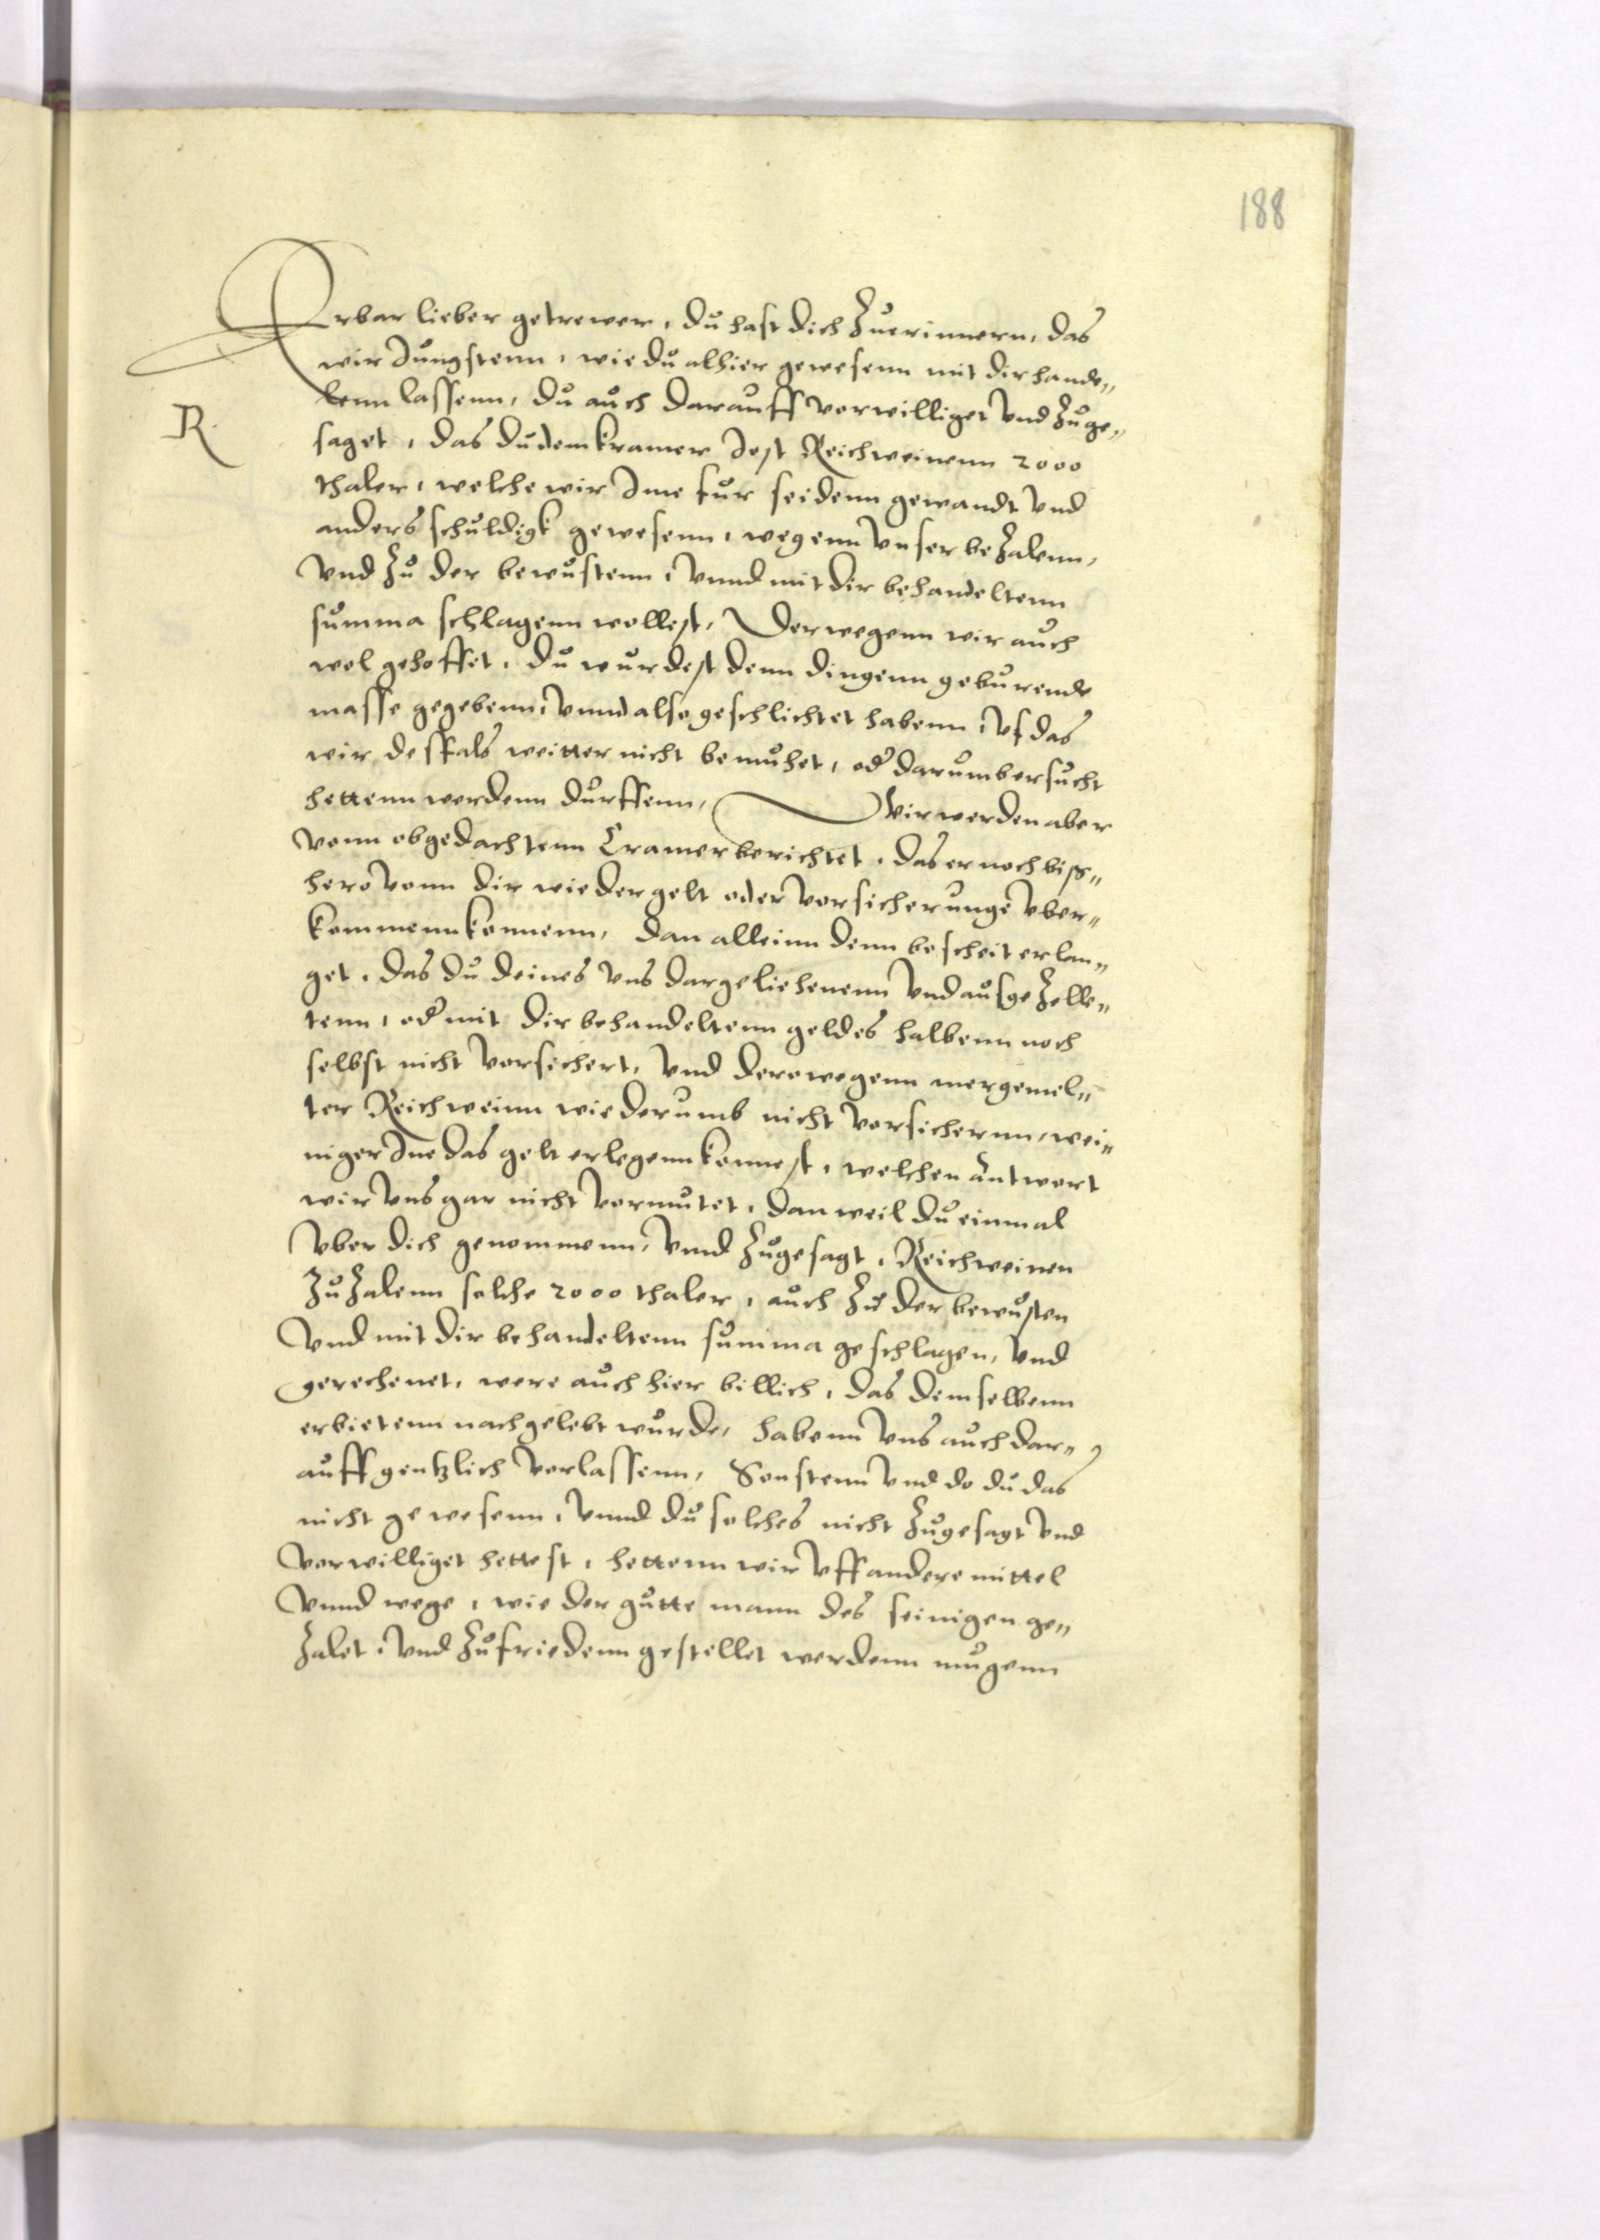 188
Erbar lieber getrewer, du hast dich zuerinnern, das
wir Jungstenn, wie du alhier gewesenn mit dir hande„
lenn lassenn, du auch darauff vorwilliget vnd zuge„
R.
saget, das du dem kramer Jost Reichweinenn 2000
thaler, welche wir Ime fur seidenn gewandt vnd
anders schuldigk gewesenn, wegenn vnser bezalenn,
vnd zu der bewustenn, vnnd mit dir behandeltenn
summa schlagenn wollest, Derwegenn wir auch
wol gehoffet, du wurdest denn dingenn geburende
masse gegebenn, vnnd also geschlichtet habenn, vf das
wir desfals weitter nicht bemuhet, od darumb ersucht
hettenn werdenn durffenn, Wir werden aber
vonn obgedachtenn Cramer berichtet, das er noch biß„
hero vonn dir wieder gelt oder vorsicherunge vber„
kommenn konnenn, dan alleinn denn bescheit erlan„
get, das du deines vns dargeliehenenn vnd ausgezelle„
tenn, od mit dir behandeltenn geldes halbenn noch
selbst nicht vorsichert, vnd derowegenn mergemel„
ter Reichweinn wiederumb nicht vorsichernn, wei„
niger Ine das gelt erlegenn konnest, welchen antwort
wir vns gar nicht vormutet, dan weil du einmal
vber dich genommenn, vnnd zugesagt, Reichweinen
zuzalenn solche 2000 thaler, auch zu der bewusten
vnd mit dir behandeltenn summa geschlagen, vnd
gerechenet, were auch hier billich, das demselbenn
erbietenn nachgelebt wurde, habenn vns auch dar„
auff gentzlich vorlassenn, Sonstenn vnd do du das
nicht gewesenn, vnnd du solches nicht zugesagt vnd
vorwilliget hettest, hettenn wir vff andere mittel
vnnd wege, wie der gutte mann des seinigen ge„
zalet, vnd zufriedenn gestellet werdenn mugenn